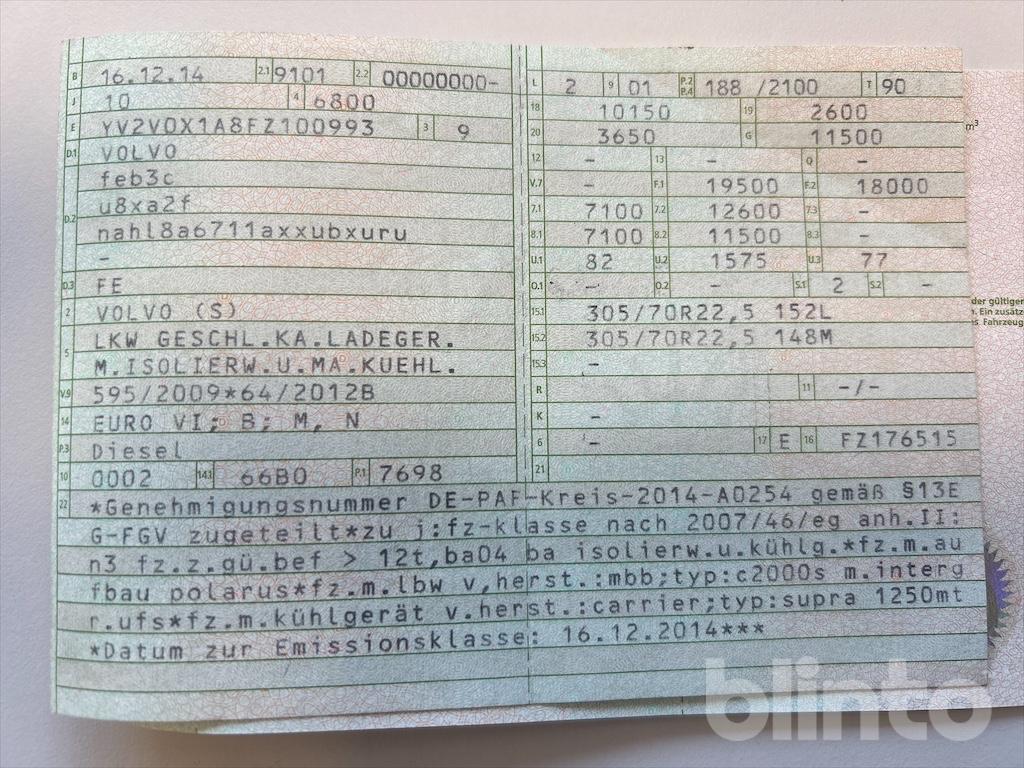 B 16.12.14 2.1 9101 2.2 00000000-
J 10 4 6800
E YV2V0X1A8FZ100993 3 9
D.1 VOLVO
feb3c
D.2 u8xa2f
nahl8a6711axxubxuru
-
D.3 FE
2 VOLVO (S)
5 LKW GESCHL.KA.LADEGER.
M.ISOLIERW.U.MA.KUEHL.
V.9 595/2009*64/2012B
14 EURO VI; B; M, N
P.3 Diesel
10 0002 14.1 66B0 P.1 7698
L 2 9 01 P.2 P.4 188 /2100 T 90
18 10150 19 2600
20 3650 G 11500
12 - 13 - Q -
V.7 - F.1 19500 F.2 18000
7.1 7100 7.2 12600 7.3 -
8.1 7100 8.2 11500 8.3 -
U.1 82 U.2 1575 U.3 77
O.1 - O.2 - S.1 2 S.2 -
15.1 305/70R22,5 152L
15.2 305/70R22,5 148M
15.3 -
R 11 -/-
K -
6 - 17 E 16 FZ176515
21
22 *Genehmigungsnummer DE-PAF-Kreis-2014-A0254 gemäß §13E
G-FGV zugeteilt*zu j:fz-klasse nach 2007/46/eg anh.II:
n3 fz.z.gü.bef > 12t,ba04 ba isolierw.u.kühlg.*fz.m.au
fbau polarus*fz.m.lbw v,herst.:mbb;typ:c2000s m.interg
r.ufs*fz.m.kühlgerät v.herst.:carrier;typ:supra 1250mt
*Datum zur Emissionsklasse: 16.12.2014***
m³
der gültigen
. Ein zusätz
s Fahrzeug
blinto